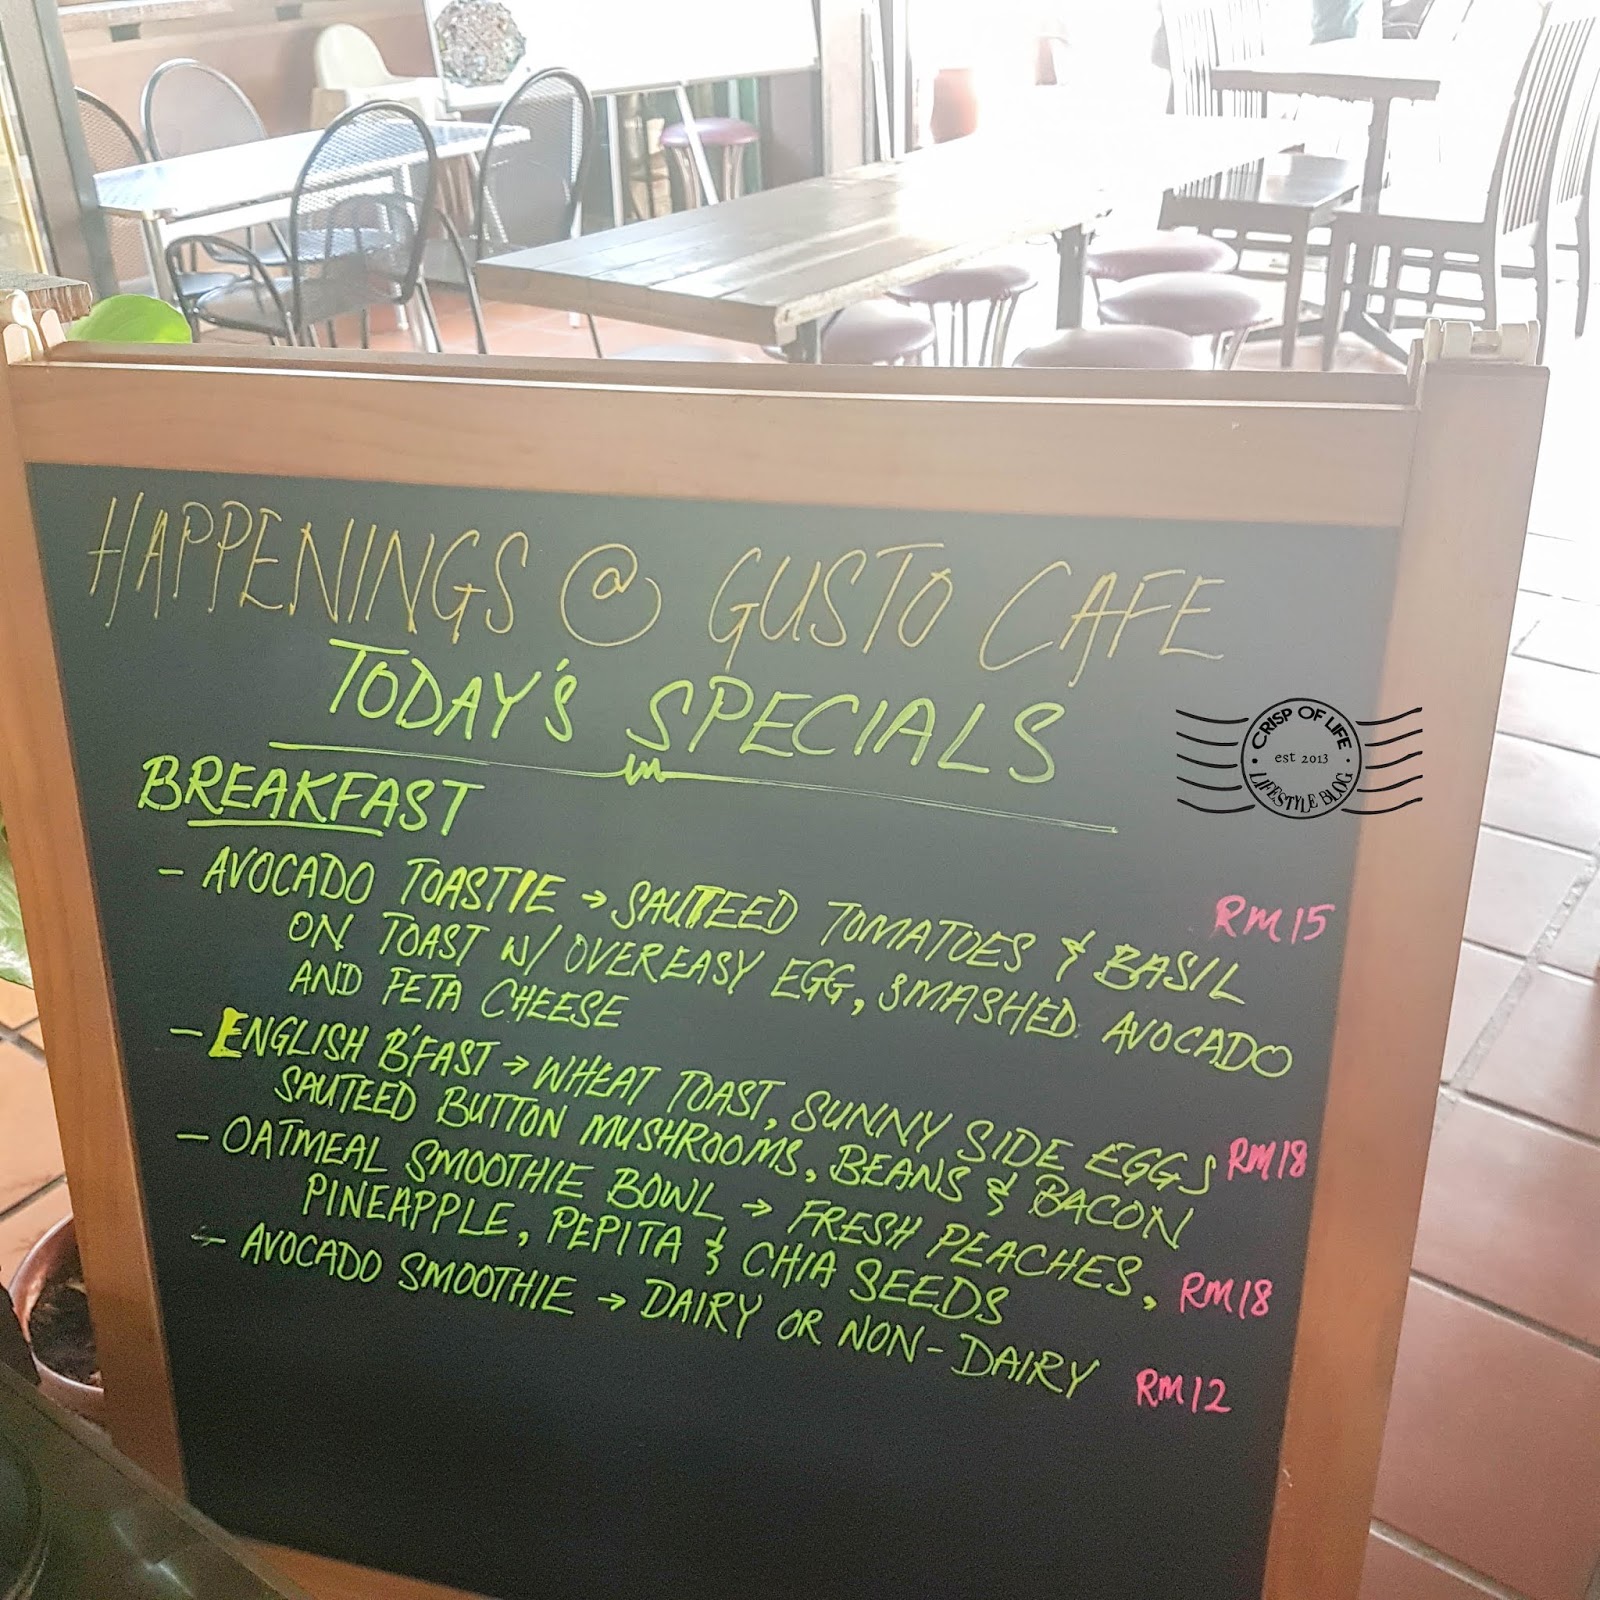 HAPPENINGS @ GUSTO CAFE
TODAY'S SPECIALS
BREAKFAST
- AVOCADO TOASTIE → SAUTEED TOMATOES & BASIL RM15
ON TOAST W/ OVEREASY EGG, SMASHED AVOCADO
AND FETA CHEESE
- ENGLISH B'FAST → WHEAT TOAST, SUNNY SIDE EGGS RM18
SAUTEED BUTTON MUSHROOMS, BEANS & BACON
- OATMEAL SMOOTHIE BOWL → FRESH PEACHES, RM18
PINEAPPLE, PEPITA & CHIA SEEDS
- AVOCADO SMOOTHIE → DAIRY OR NON-DAIRY RM12
CRISP OF LIFE
est 2013
LIFESTYLE BLOG